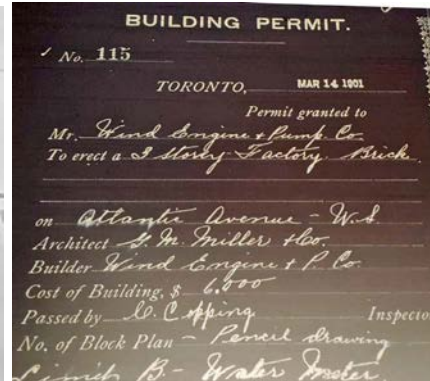 BUILDING PERMIT.
No. 115
TORONTO, MAR 14 1901
Permit granted to
Mr. Wind Engine + Pump Co.
To erect a 3 storey Factory. Brick
on Atlantic Avenue - W.S.
Architect G. M. Miller + Co.
Builder Wind Engine + P. Co.
Cost of Building, $ 6,000
Passed by Copping Inspecto
No. of Block Plan - Pencil drawing
B - Water Meter